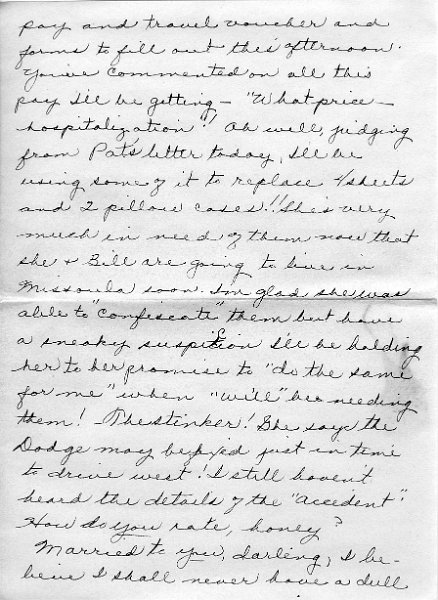 pay and travel voucher and
forms to fill out this afternoon.
You've commented on all this
pay I'll be getting — "What price —
hospitalization"! Oh well, judging
from Pat's letter today, I'll be
using some of it to replace 4 sheets
and 2 pillow cases!! She's very
much in need of them now that
she & Bill are going to live in
Missoula soon. I'm glad she was
able to "confiscate" them but have
a sneaky suspicion I'll be holding
her to her promise to "do the same
for me" when "we'll" be needing
them! The stinker! She says the
Dodge may be fixed just in time
to drive west! I still haven't
heard the details of the "accedent".
How do you rate, honey?
Married to you, darling, I be-
lieve I shall never have a dull